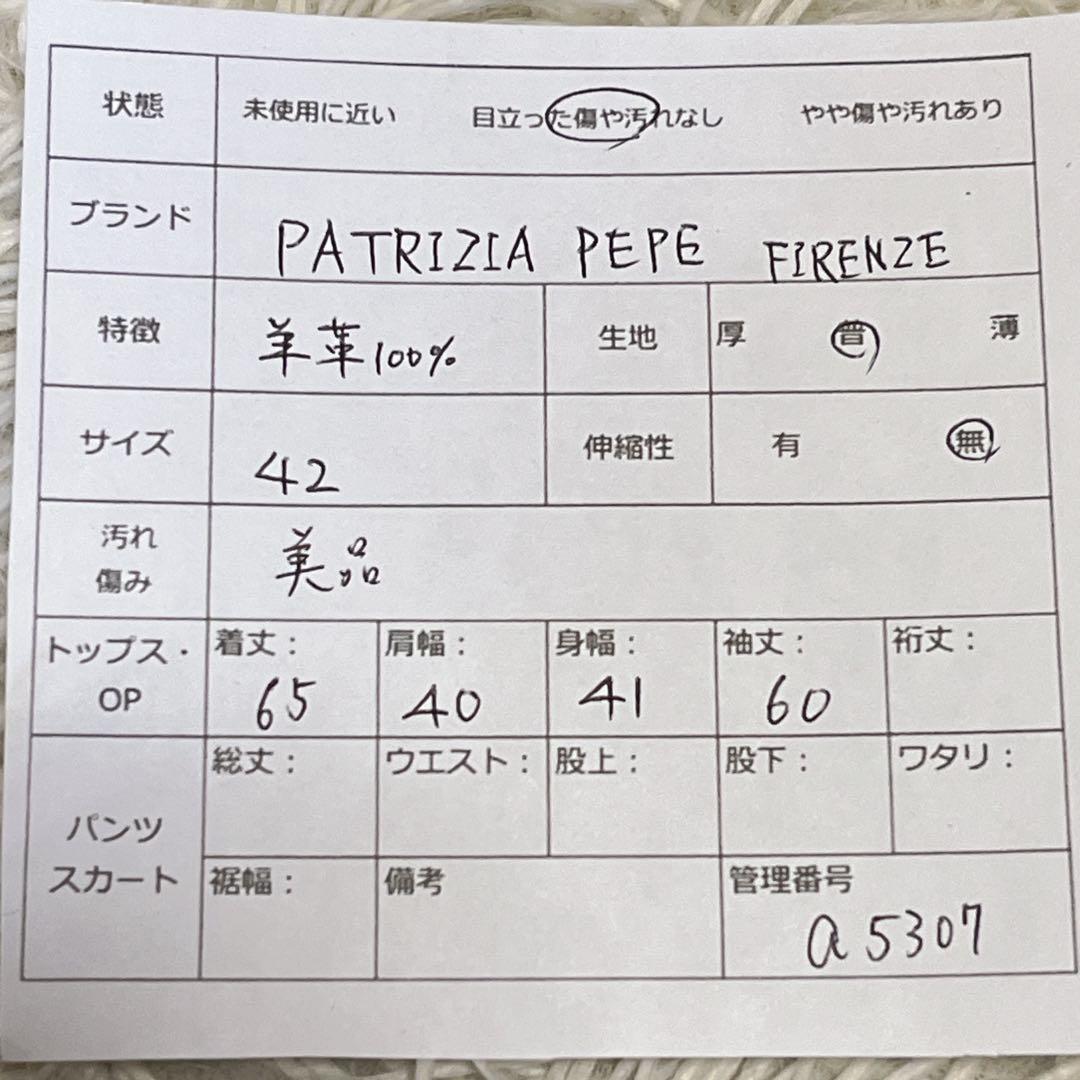 状態 未使用に近い 目立った傷や汚れなし やや傷や汚れあり
ブランド PATRIZIA PEPE FIRENZE
特徴 羊革100% 生地 厚 普 薄
サイズ 42 伸縮性 有 無
汚れ
傷み
美品
トップス・
OP
着丈： 肩幅： 身幅： 袖丈： 裄丈：
65 40 41 60
パンツ
スカート
総丈： ウエスト： 股上： 股下： ワタリ：
裾幅： 備考 管理番号
a5307